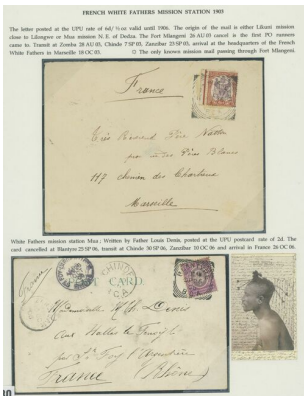 FRENCH WHITE FATHERS MISSION STATION 1903
The letter posted at the UPU rate of 6d/ ½ oz valid until 1906. The origin of the mail is either Likuni mission
close to Lilongwe or Mua mission N. E. of Dedza. The Fort Mlangeni 26 AU 03 cancel is the first PO runners
came to. Transit at Zomba 28 AU 03, Chinde 7 SP 03, Zanzibar 23 SP 03, arrival at the headquarters of the French
White Fathers in Marseille 18 OC 03. The only known mission mail passing through Fort Mlangeni.
France
Très Révérend Père
Pères Blancs
117 chemin des Chartreux
Marseille
White Fathers mission station Mua; Written by Father Louis Denis, posted at the UPU postcard rate of 2d. The
card cancelled at Blantyre 25 SP 06, transit at Chinde 30 SP 06, Zanzibar 10 OC 06 and arrival in France 26 OC 06.
CHINDE
CARD
Mademoiselle M. Denis
aux Halles
par Ste Foy l'Argentière
France (Rhône)